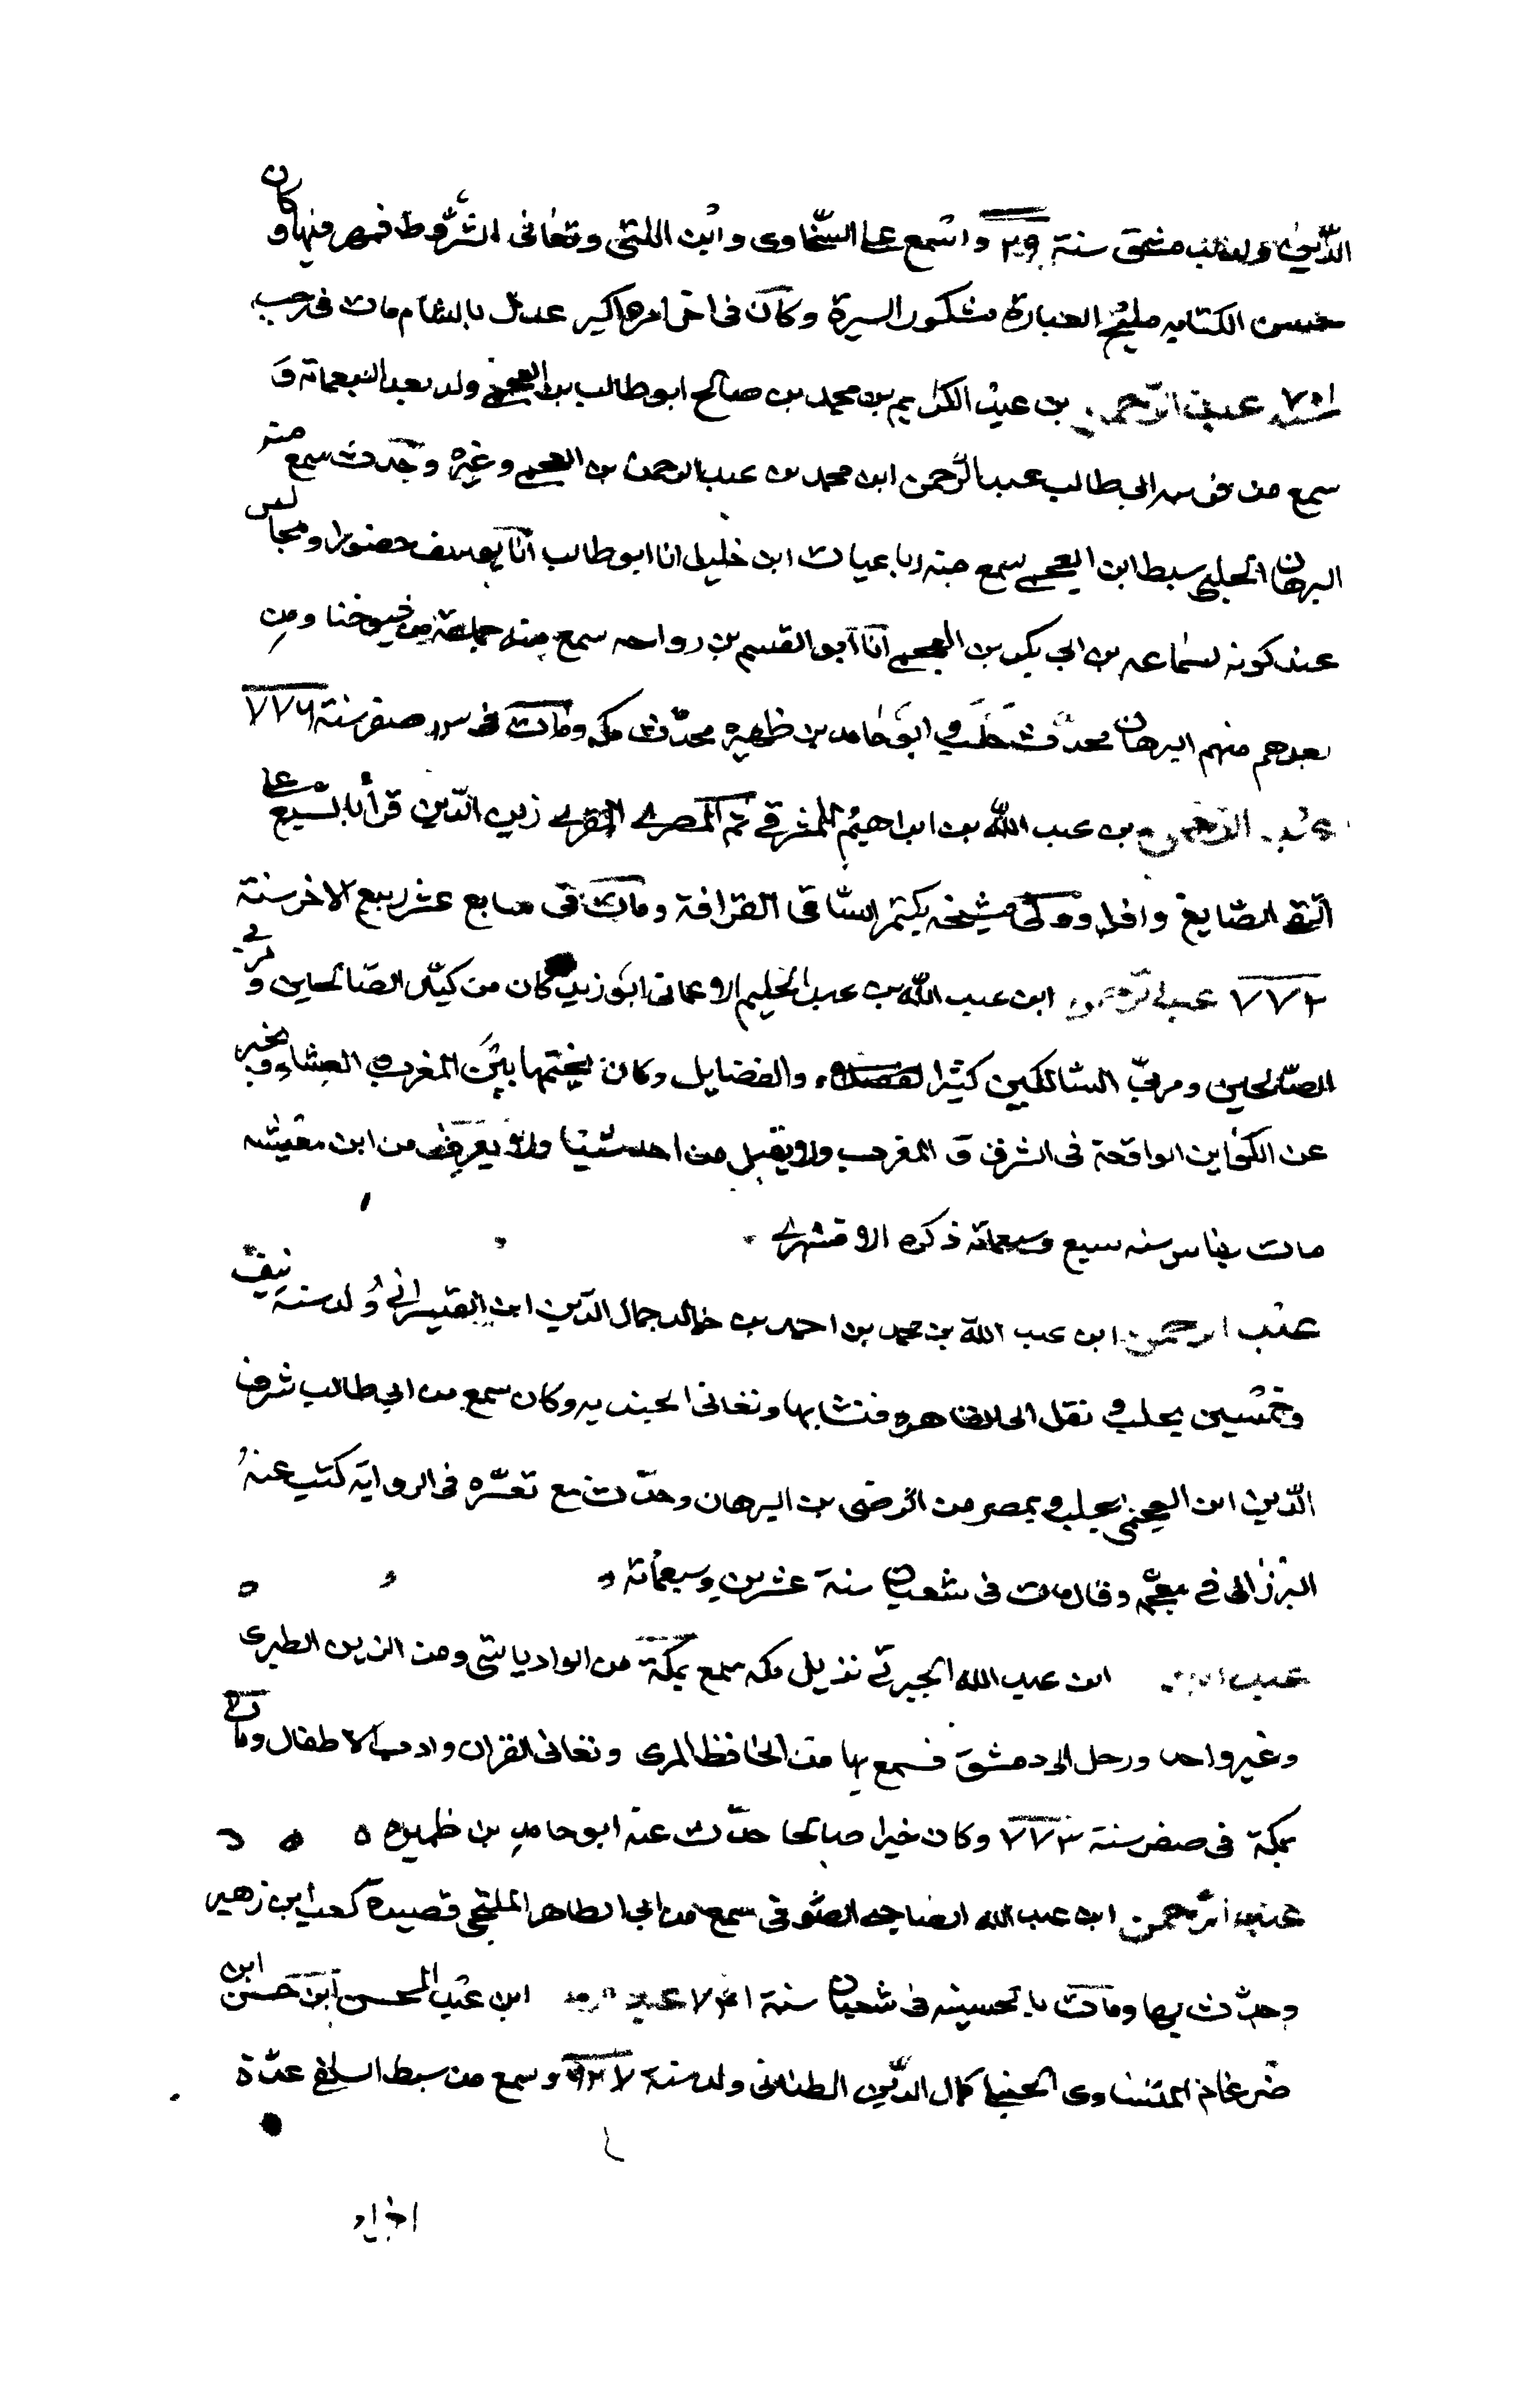 الدين ولد بدمشق سنة ٦٢٩ واسمع على السخاوى وابن اللتى وتعانى الشروط فمهر فيها وكان
حسن الكتابه مليح العبارة مشكور السيرة وكان فى اخر امره اكبر عدل بالشام مات فى رجب
٧٠١ عبد الرحمن بن عبد الكريم بن محمد بن صالح ابو طالب بن العجمى ولد بعد السبعمائة و
سمع من ابى طالب عبد الرحمن ابن محمد بن عبد الرحمن بن العجمى وغيره وحدث سمع منه
البرهان الحلبى سبط ابن العجمى سمع منه رباعيات ابن خليل انا ابو طالب انا يوسف حضورا ومجالس
عند كونه لسماعه من ابى بكر بن العجمى انا ابو القسم بن رواحه سمع منه جماعة من شيوخنا ومن
بعدهم منهم البرهان محدث حلب و ابو حامد بن ظهيره محدث مكه ومات فى صفر سنة ٧٧٦
عبد الرحمن بن عبد الله بن ابراهيم المشرقى ثم المصرى المقرى زين الدين قرأ بالسبع على
التقى الصايغ واقرا وولى مشيخه بكتمر الساقى القرافة ومات فى سابع عشر ربيع الاخر سنة
٧٧٢ عبد الرحمن ابن عبد الله بن عبد الحليم ابو زيد كان من الصالحين و
الصالحين ومربى السالكين كثير والفضايل وكان يختمها بين المغرب و العشاء ويخبر
عن الكواين الواقعة فى الشرق و المغرب ولا يقبل من احد شيئا ولا يعرف من ابن معيشته
مات بفاس سنه سبع وسبعمائة ذكره الاقشهرى
عبد الرحمن ابن عبد الله بن محمد بن احمد بن خالد جمال الدين ابن القيسرانى ولد سنة نيف
وخمسين بحلب و نقل الى القاهره فنشا بها وتعانى الجنديه وكان سمع من ابى طالب شرف
الدين ابن العجمى بحلب و بمصر من الرضى بن البرهان وحدث مع تعسره فى الروايه كتب عنه
البرزالى فى معجمه وقال مات فى شعبان سنة عشرين وسبعمائة
عبد الرحمن ابن عبد الله الجبرتى نزيل مكه سمع بمكة من الوادياشى ومن الزين الطبرى
وغير واحد ورحل الى دمشق فسمع بها من الحافظ المزى وتعانى القران وادب الاطفال ومات
بمكة فى صفر سنة ٧٧٣ وكان خيرا صالحا حدث عنه ابو حامد بن ظهيره
عبد الرحمن ابن عبد الله الصوفى سمع من ابى الطاهر المليجى قصيدة كعب ابن زهير
وحدث بها ومات بالحسينيه فى شعبان سنة ٧٣١ عبد الرحمن ابن عبد المحسن ابن حسن ابن
ضرغام المنشاوى الحنبلى كمال الدين ولد سنة ٦٢٧ وسمع من سبط السلفى عدة
اجزاء